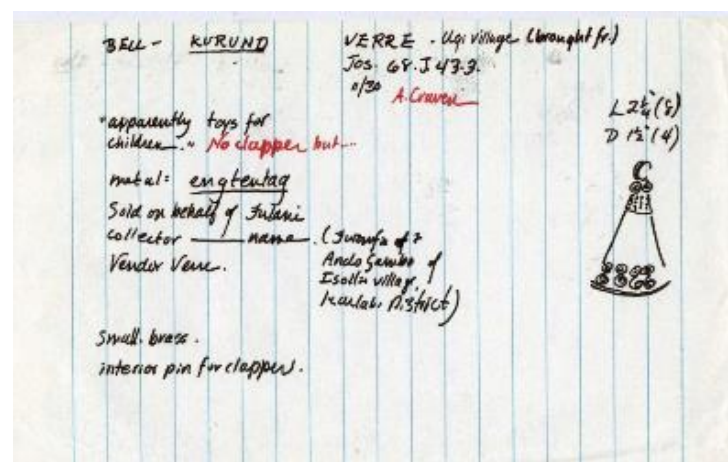 BELL - KURUND
VERRE - Ugi village (brought fr.)
Jos. 68.J 43.3.
0/30
A. Craven
L 2¼" (8)
D 1½" (4)
"apparently toys for
children." No clapper but...
metal: engtentag
Sold on behalf of Fulani
collector ——— name. (
Vendor Verre.
Ando of
village,
District)
Small. brass.
interior pin for clapper.